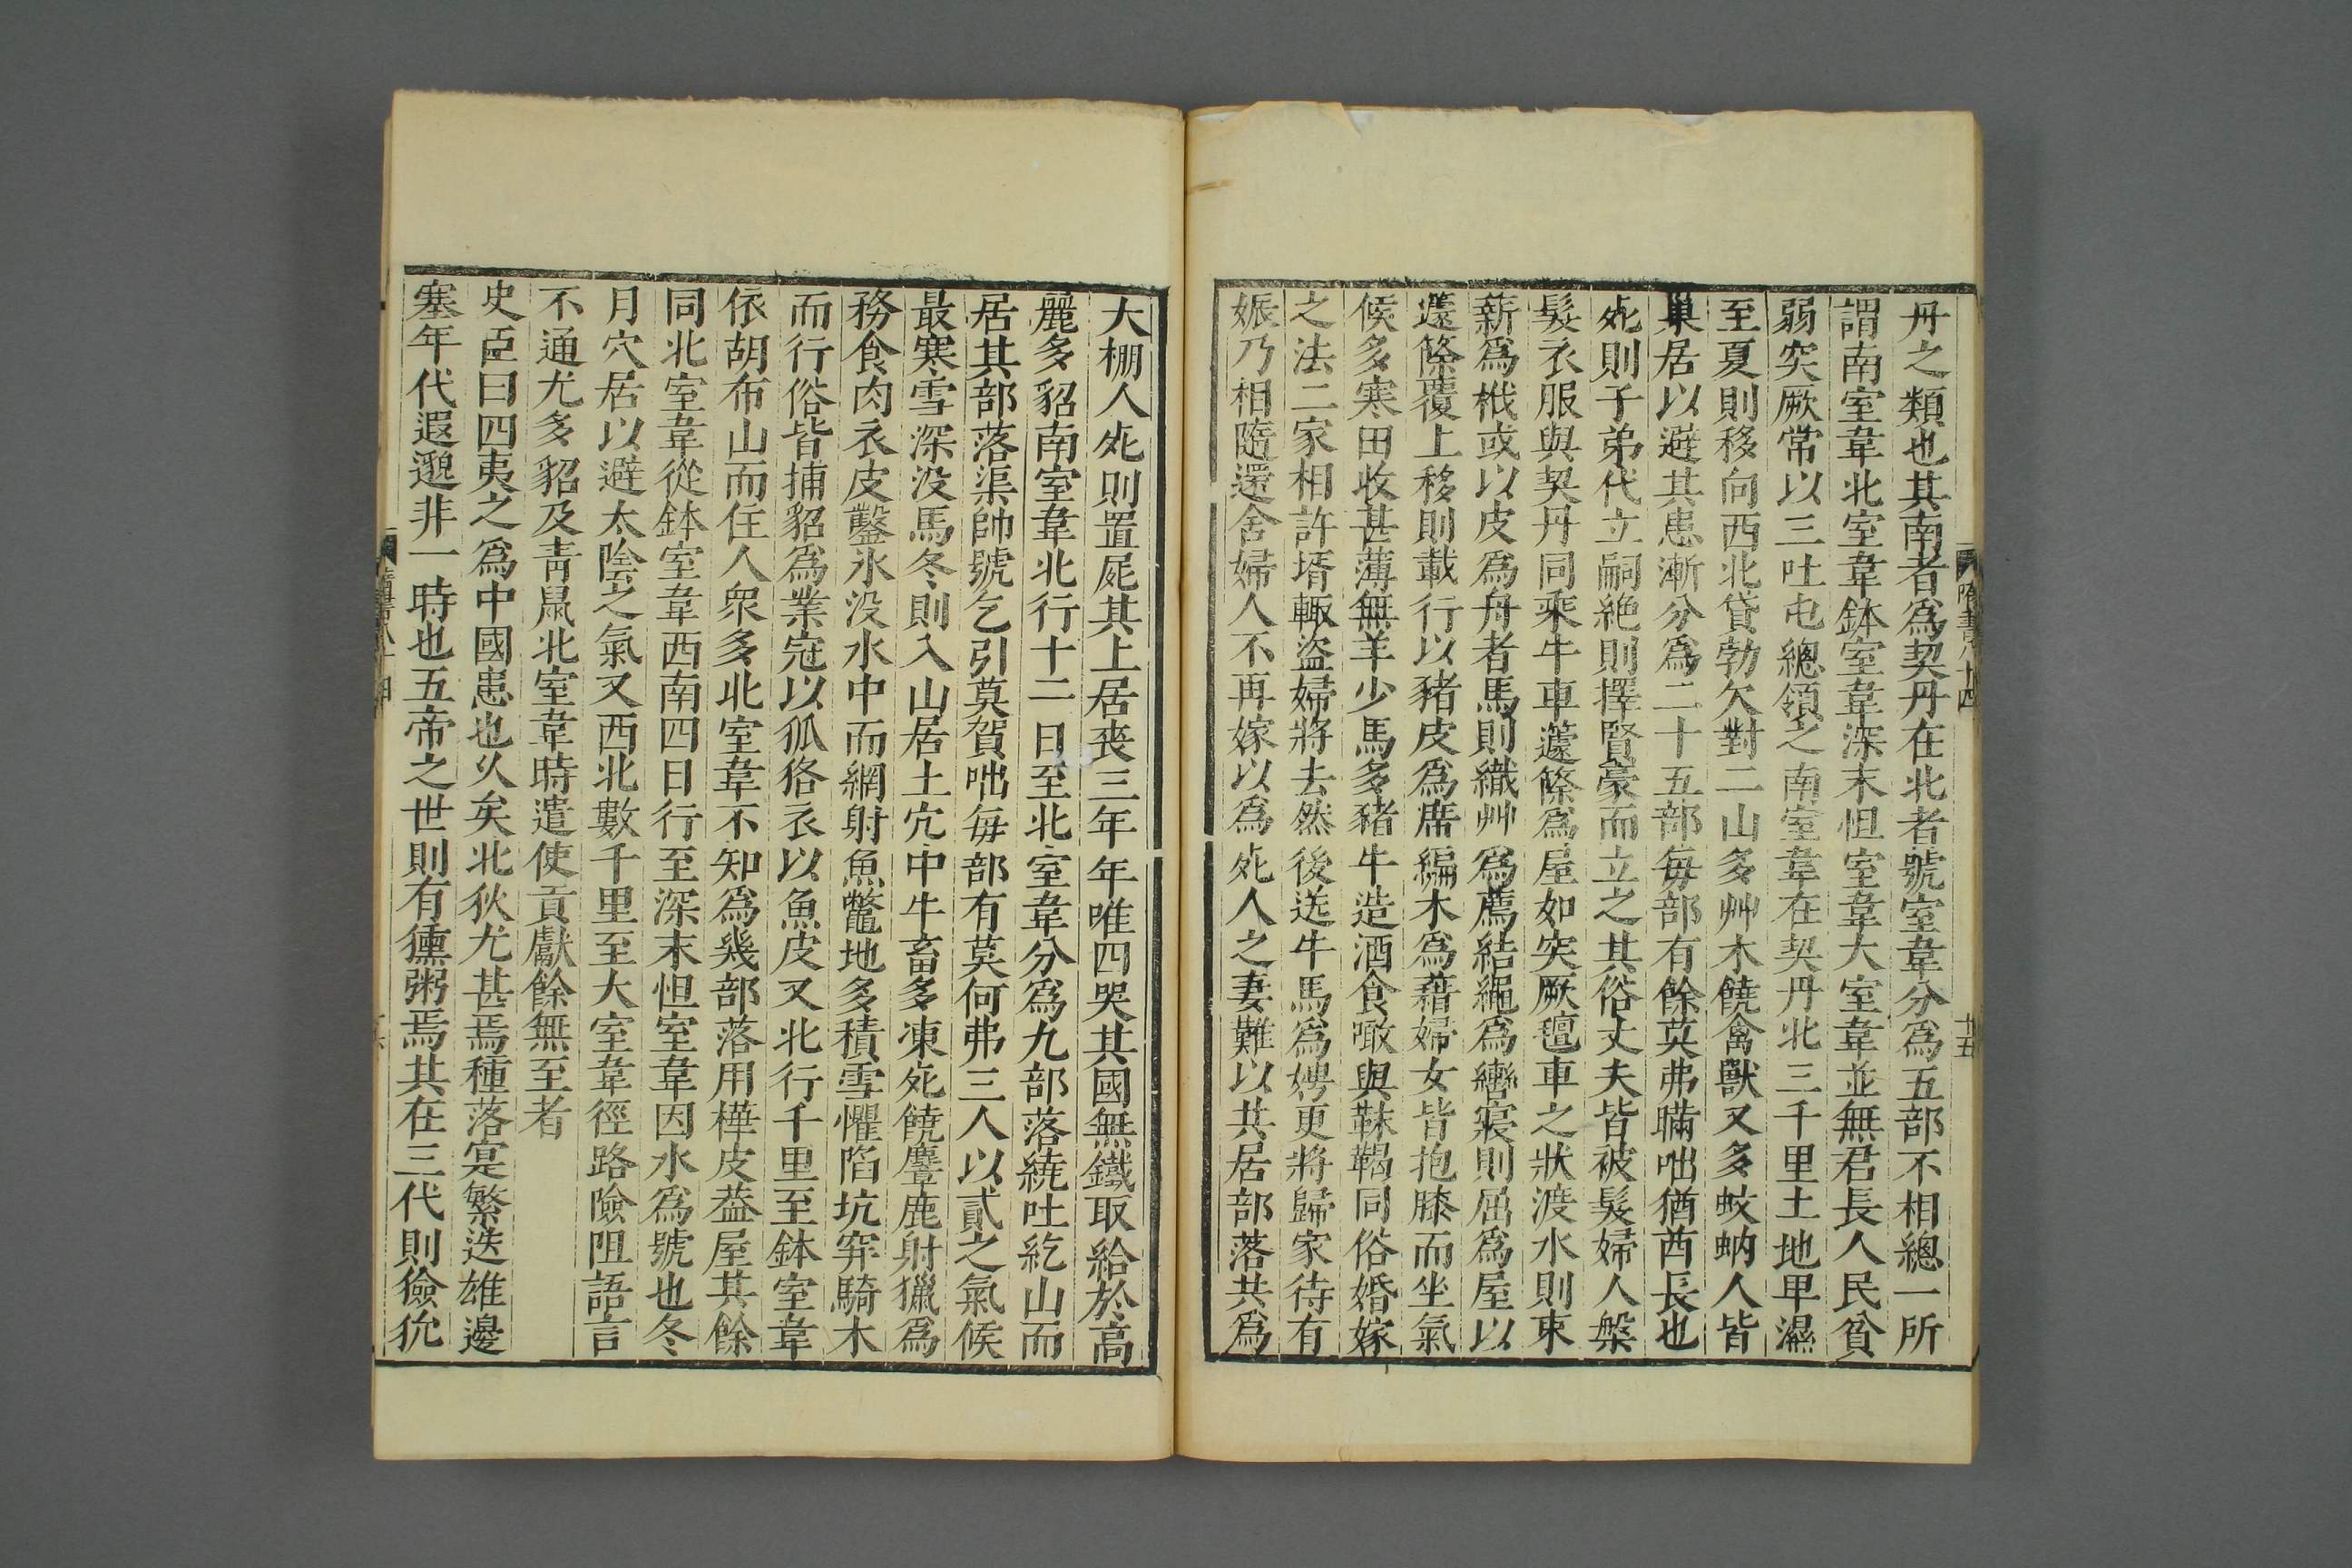 丹之類也其南者爲契丹在北者號室韋分爲五部不相總一所
謂南室韋北室韋鉢室韋深末怛室韋大室韋並無君長人民貧
弱突厥常以三吐屯總領之南室韋在契丹北三千里土地卑濕
至夏則移向西北貸勃欠對二山多艸木饒禽獸又多蚊蚋人皆
巢居以避其患漸分爲二十五部每部有餘莫弗瞞咄猶酋長也
死則子弟代立嗣絶則擇賢豪而立之其俗丈夫皆被髮婦人槃
髮衣服與契丹同乘牛車籧篨爲屋如突厥氊車之狀渡水則束
薪爲栰或以皮爲舟者馬則織艸爲薦結繩爲轡寢則屈爲屋以
籧篨覆上移則載行以豬皮爲席編木爲藉婦女皆抱膝而坐氣
候多寒田收甚薄無羊少馬多豬牛造酒食噉與靺鞨同俗婚嫁
之法二家相許壻輙盜婦將去然後送牛馬爲娉更將歸家待有
娠乃相隨還舍婦人不再嫁以爲死人之妻難以共居部落共爲
隋書八十四
十五
大棚人死則置屍其上居喪三年年唯四哭其國無鐵取給於高
麗多貂南室韋北行十一日至北室韋分爲九部落繞吐紇山而
居其部落渠帥號乞引莫賀咄每部有莫何弗三人以貳之氣候
最寒雪深没馬冬則入山居土穴中牛畜多凍死饒麞鹿射獵爲
務食肉衣皮鑿氷没水中而網射魚鼈地多積雪懼陷坑穽騎木
而行俗皆捕貂爲業冠以狐狢衣以魚皮又北行千里至鉢室韋
依胡布山而住人衆多北室韋不知爲幾部落用樺皮葢屋其餘
同北室韋從鉢室韋西南四日行至深末怛室韋因水爲號也冬
月穴居以避太陰之氣又西北數千里至大室韋徑路險阻語言
不通尤多貂及青鼠北室韋時遣使貢獻餘無至者
史臣曰四夷之爲中國患也久矣北狄尤甚焉種落寔繁迭雄邊
塞年代遐邈非一時也五帝之世則有獯粥焉其在三代則獫狁